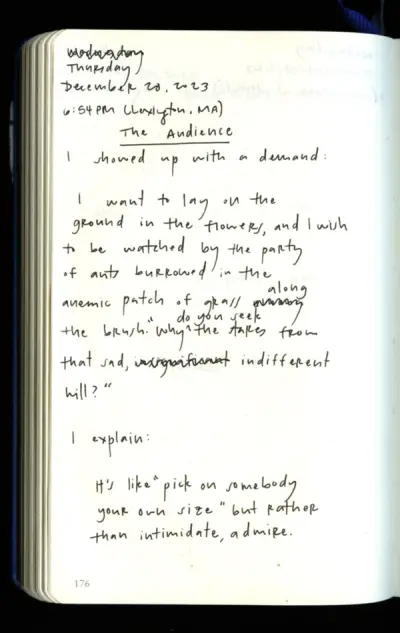 Wednesday
Thursday
December 28, 2023
6:54 PM (Lexington, MA)
The Audience
I showed up with a demand:
I want to lay on the
ground in the flowers, and I wish
to be watched by the party
of ants burrowed in the
along
anemic patch of grass among
do you seek
the brush." Why the stares from
that sad, insignificant indifferent
hill?"
I explain:
It's like "pick on somebody
your own size" but rather
than intimidate, admire.
176